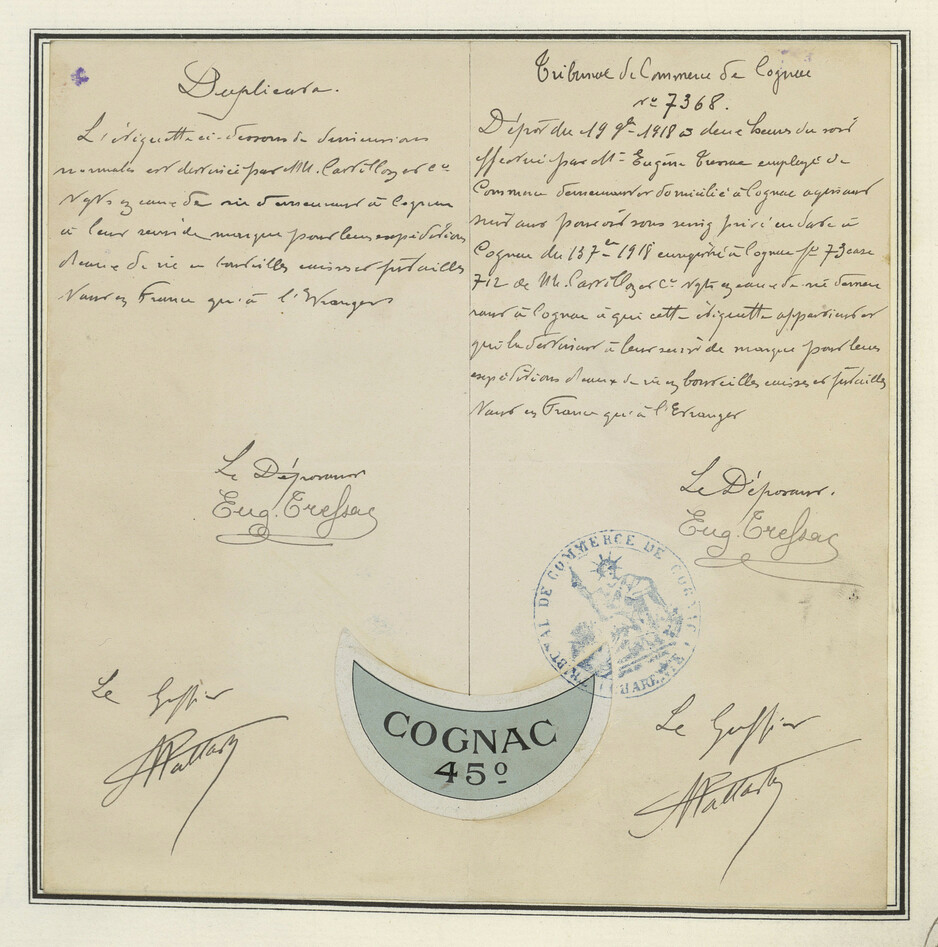 Duplicata.
L'étiquette ci-dessous de dimensions
normales est destinée par MM. Castillon et Cie
Ngts en eaux de vie demeurant à Cognac
à leur servir de marque pour leurs expéditions
d'eaux de vie en bouteilles caisses et futailles
tant en France qu'à l'Etranger
Le Déposant
Eug. Tressac
Le Greffier
Tribunal de Commerce de Cognac
no 7368.
Dépôt du 19 9bre 1918 à deux heures du soir
effectué par Mr Eugène Tressac employé de
Commerce demeurant et domicilié à Cognac agissant
suivant pouvoir sous seing privé en date à
Cognac du 13 7bre 1918 enregistré à Cognac fo 73 case
712 de MM. Castillon et Cie Ngts en eaux de vie demeu
rant à Cognac à qui cette étiquette appartient et
qui la destinent à leur servir de marque pour leurs
expéditions d'eaux de vie en bouteilles caisses et futailles
tant en France qu'à l'Etranger
Le Déposant.
Eug. Tressac
TRIBUNAL DE COMMERCE DE COGNAC (CHARENTE)
Le Greffier
COGNAC
45º